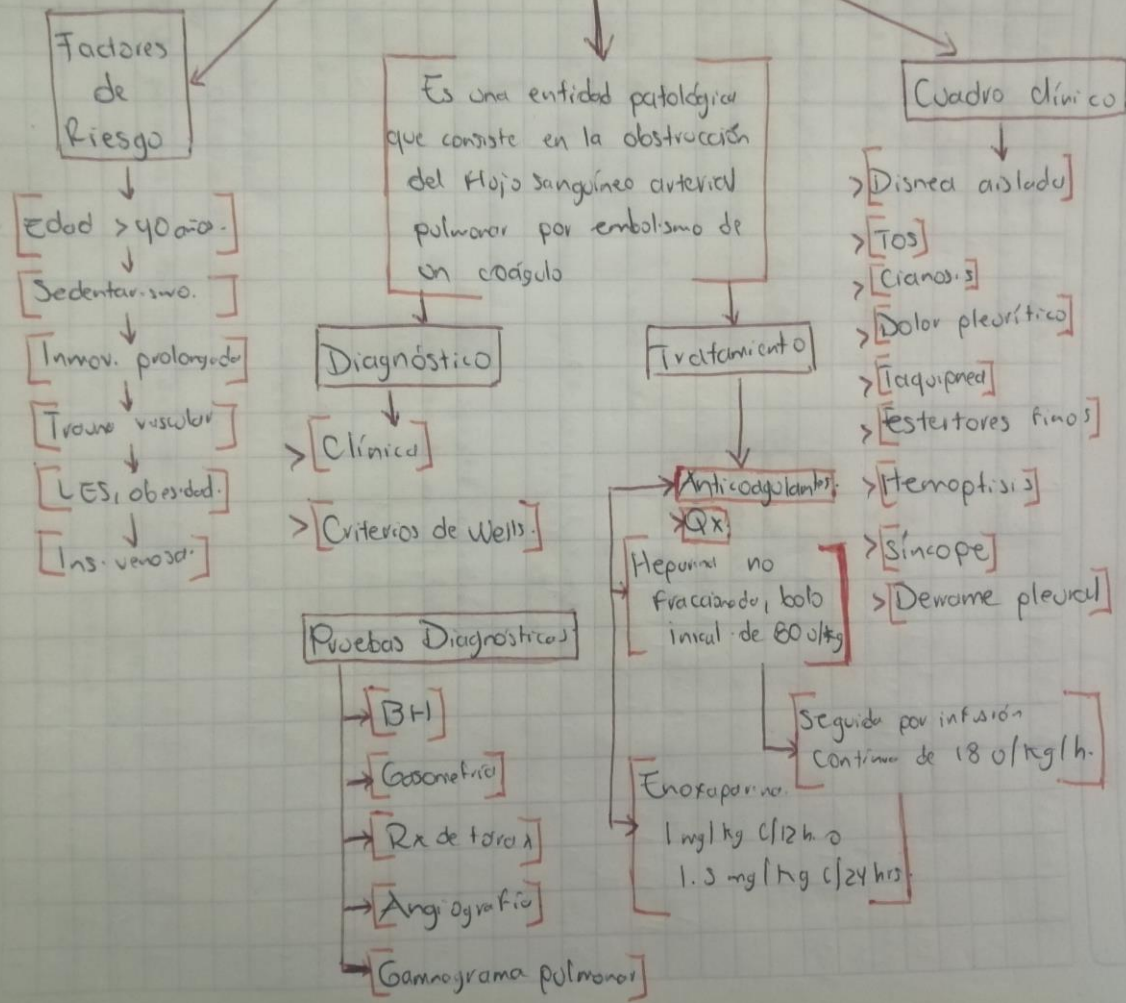 Factores
de
Riesgo
Edad > 40 año.
Sedentarismo.
Inmov. prolongada
Trauma vascular
LES, obesidad.
Ins. venosa.
Es una entidad patológica
que consiste en la obstrucción
del flujo sanguíneo arterial
pulmonar por embolismo de
un coágulo
Diagnóstico
> Clínica
> Criterios de Wells.
Pruebas Diagnósticas
BH
Gasometría
Rx de tórax
Angiografía
Gamnograma pulmonar
Tratamiento
Anticoagulantes.
> Qx
Heparina no
fraccionada, bolo
inicial de 80 U/kg
Seguida por infusión
continua de 18 U/kg/h.
Enoxaparina.
1 mg/kg c/12 h. o
1.5 mg/kg c/24 hrs
Cuadro clínico
> Disnea aislada
> Tos
> Cianosis
> Dolor pleurítico
> Taquipnea
> Estertores finos
> Hemoptisis
> Síncope
> Derrame pleural